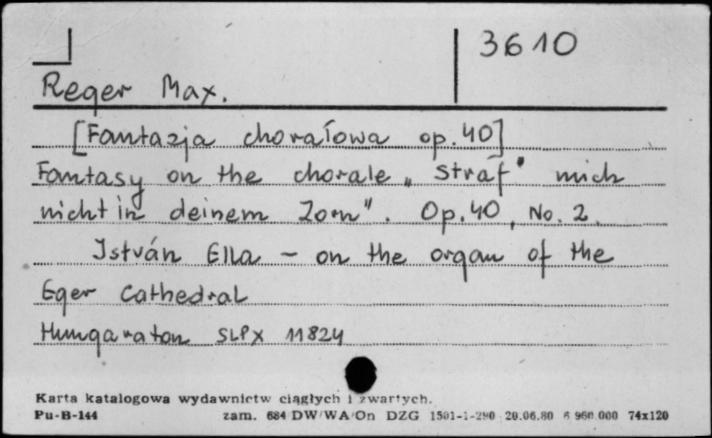 3610
Reger Max.
[Fantazja chorałowa op. 40]
Fantasy on the chorale „Straf' mich
nicht in deinem Zorn". Op. 40, No. 2.
István Ella - on the organ of the
Eger Cathedral
Hungaraton SLPX 11824
Karta katalogowa wydawnictw ciągłych i zwartych.
Pu-B-144 zam. 684 DW/WA/On DZG 1501-1-290 20.06.80 6 960.000 74x120